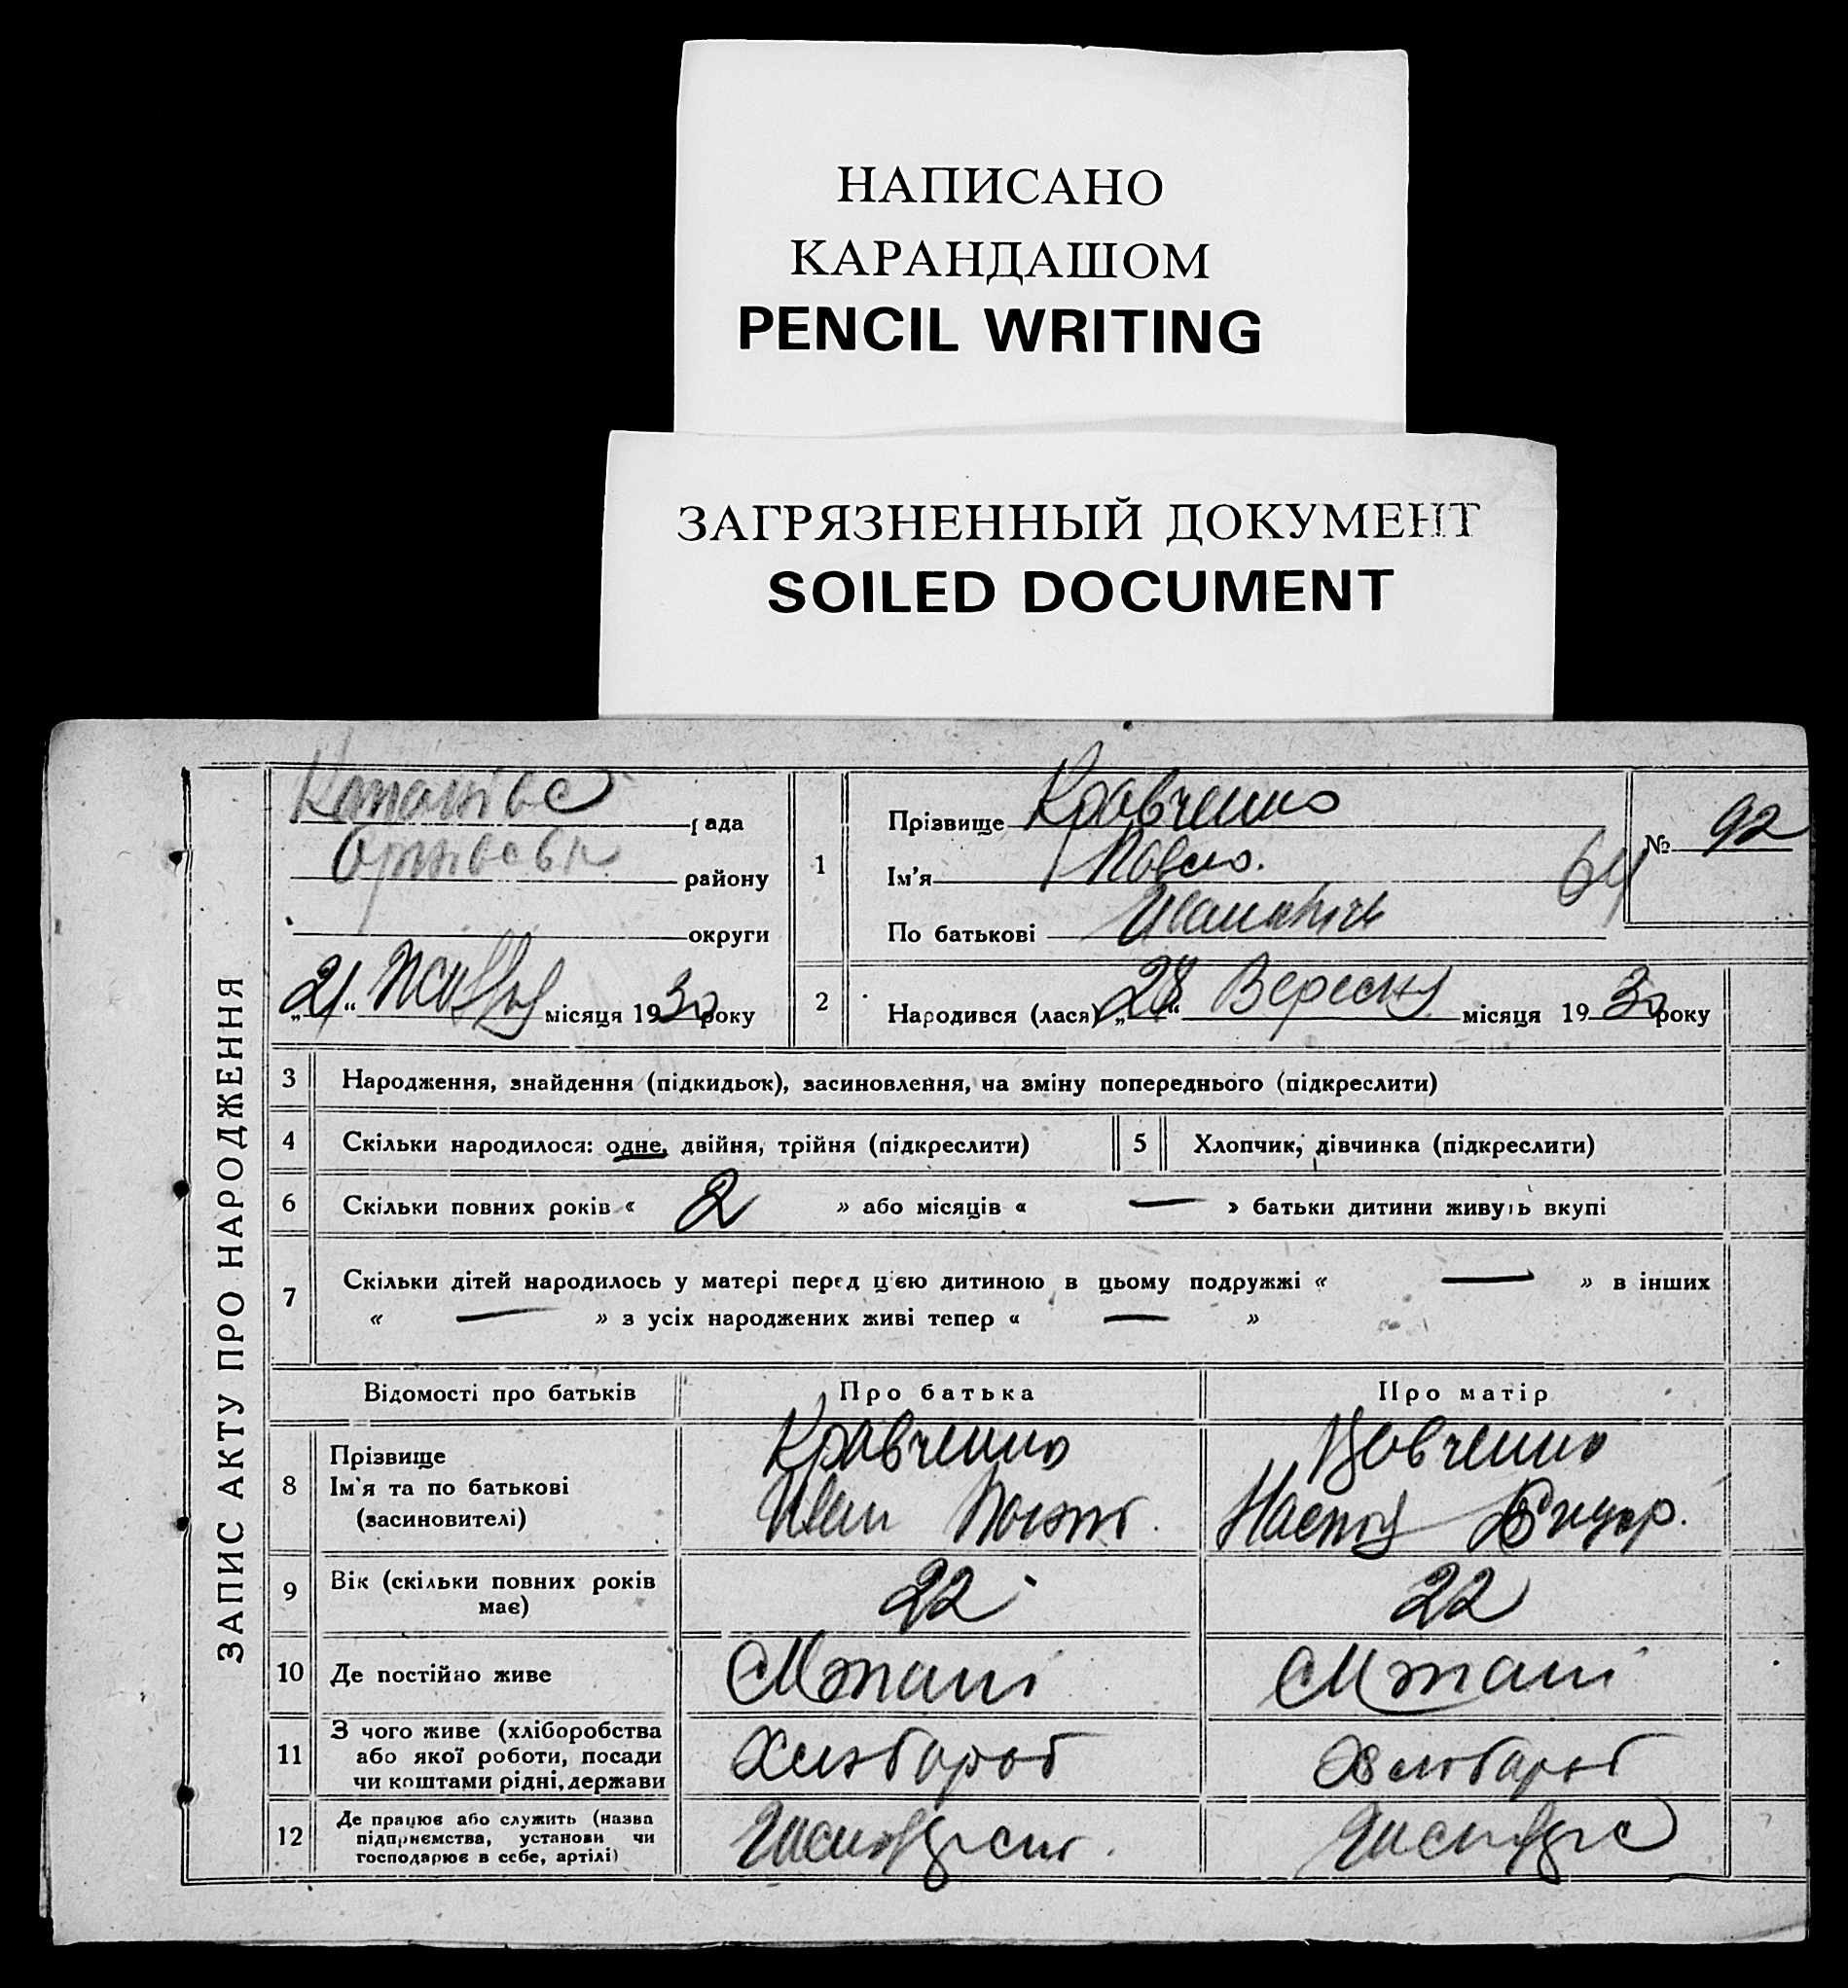 НАПИСАНО
КАРАНДАШОМ
PENCIL WRITING
ЗАГРЯЗНЕННЫЙ ДОКУМЕНТ
SOILED DOCUMENT
ЗАПИС АКТУ ПРО НАРОДЖЕННЯ
рада
району
округи
„21“ Жовтня місяця 1930 року
1
Прізвище Кравченко
Ім'я Павло.
По батькові Иванович
№ 92
64
2
Народився (лася) „28“ Вересня місяця 1930 року
3 Народження, знайдення (підкидьок), засиновлення, на зміну попереднього (підкреслити)
4 Скільки народилося: одне, двійня, трійня (підкреслити) 5 Хлопчик, дівчинка (підкреслити)
6 Скільки повних років « 2 » або місяців « — » батьки дитини живуть вкупі
7 Скільки дітей народилось у матері перед цією дитиною в цьому подружжі « — » в інших
« — » з усіх народжених живі тепер « — »
Відомості про батьків Про батька Про матір
8 Прізвище
Ім'я та по батькові
(засиновителі)
Кравченко
Иван
Настя
9 Вік (скільки повних років
має)
22 22
10 Де постійно живе
11 З чого живе (хліборобства
або якої роботи, посади
чи коштами рідні, держави
Хлібороб Хлібороб
12 Де працює або служить (назва
підприємства, установи чи
господарює в себе, артілі)